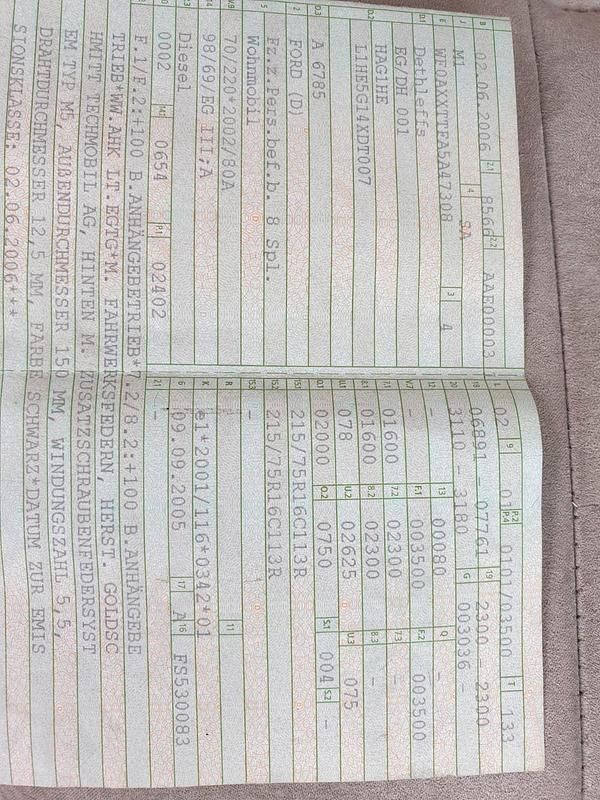 B 02.06.2006 2.1 8566 2.2 AAE00003
J M1 4 SA
E WF0AXXTTFA5A47308 3 4
D.1 Dethleffs
EG/DH 001
D.2 HAG1HE
L1HE5G14XDT007
D.3 A 6785
2 FORD (D)
5 Fz.z.Pers.bef.b. 8 Spl.
Wohnmobil
V.9 70/220*2002/80A
14 98/69/EG III;A
P.3 Diesel
10 0002 14.1 0654 P.1 02402
L 02 9 01 P.2 P.4 0101/03500 T 133
18 06891 - 07761 19 2300 - 2300
20 3110 - 3180 G 003036 -
12 - 13 00080 Q -
V.7 - F.1 003500 F.2 003500
7.1 01600 7.2 02300 7.3 -
8.1 01600 8.2 02300 8.3 -
U.1 078 U.2 02625 U.3 075
O.1 02000 O.2 0750 S.1 004 S.2 -
15.1 215/75R16C113R
15.2 215/75R16C113R
15.3 -
R - 11
K e1*2001/116*0342*01
6 09.09.2005 17 A 16 FS530083
21 -
F.1/F.2:+100 B.ANHÄNGEBETRIEB*7.2/8.2:+100 B.ANHÄNGEBE
TRIEB*WW.AHK LT.EGTG*M. FAHRWERKSFEDERN, HERST. GOLDSC
HMITT TECHMOBIL AG, HINTEN M. ZUSATZSCHRAUBENFEDERSYST
EM TYP M5, AUßENDURCHMESSER 150 MM, WINDUNGSZAHL 5,5,
DRAHTDURCHMESSER 12,5 MM, FARBE SCHWARZ*DATUM ZUR EMIS
SIONSKLASSE: 02.06.2006***